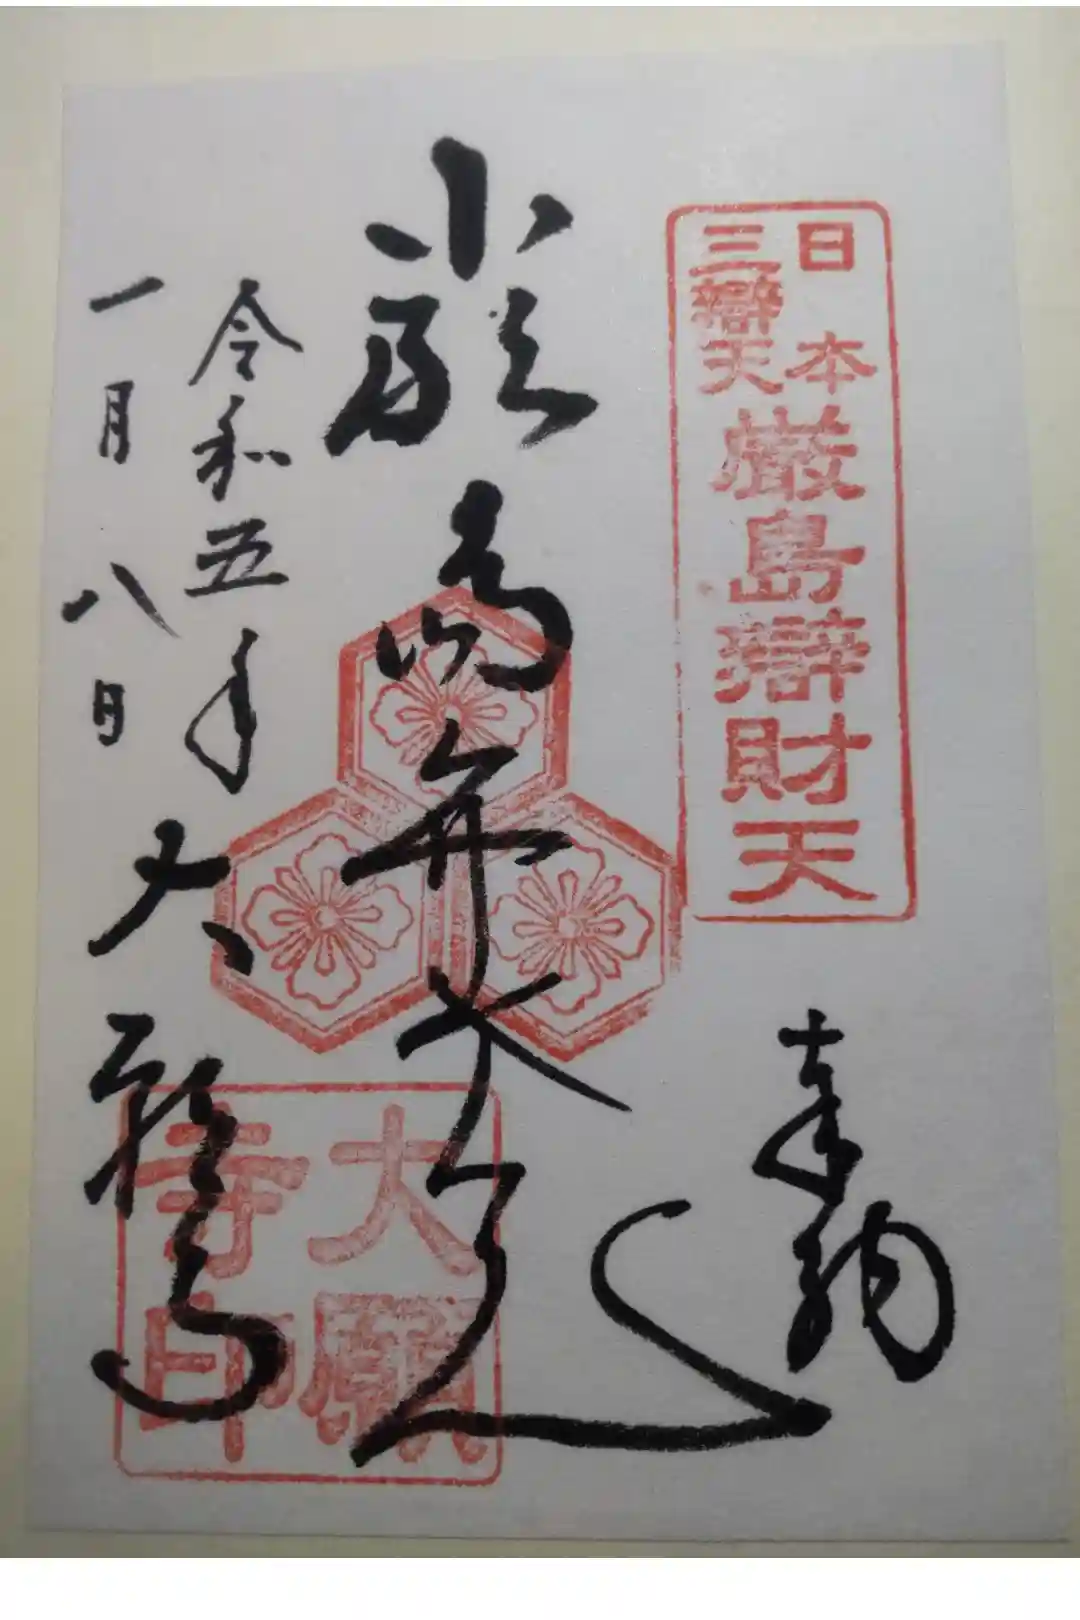 日本
三辯天
厳島辯財天
奉納
厳島弁才天
令和五年
一月八日
大願寺
大願寺印